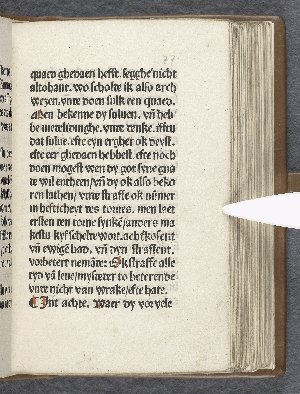 77
quaet ghedaen hefft. segghe nicht
altohant. wo scholde ik also erch
wezen. vnde doen sulk een quaed.
Men bekenne dy suluen. vñ heb
be medelidinghe. vnde denke. iftu
dat sulue. efte eyn ergher ok deyst.
efte eer ghedaen hebbest. efte noch
doen mogest wen dy got syne gna
de wil entheen/vñ dy ok also beko
ren lathen/ vnde straffe ok nümer
in hefticheyt des tornes. men laet
ersten den torne synkē/anders ma
kestu kyf schelde wort. achterkosent
vñ ewighē had. vñ dyn straffent.
vorbetert nemāde: Ok straffe alle
tyd vā leue/myssedet to beterende
vnde nicht van wrake/efte hate.
Int achte. Waer dy vor vele